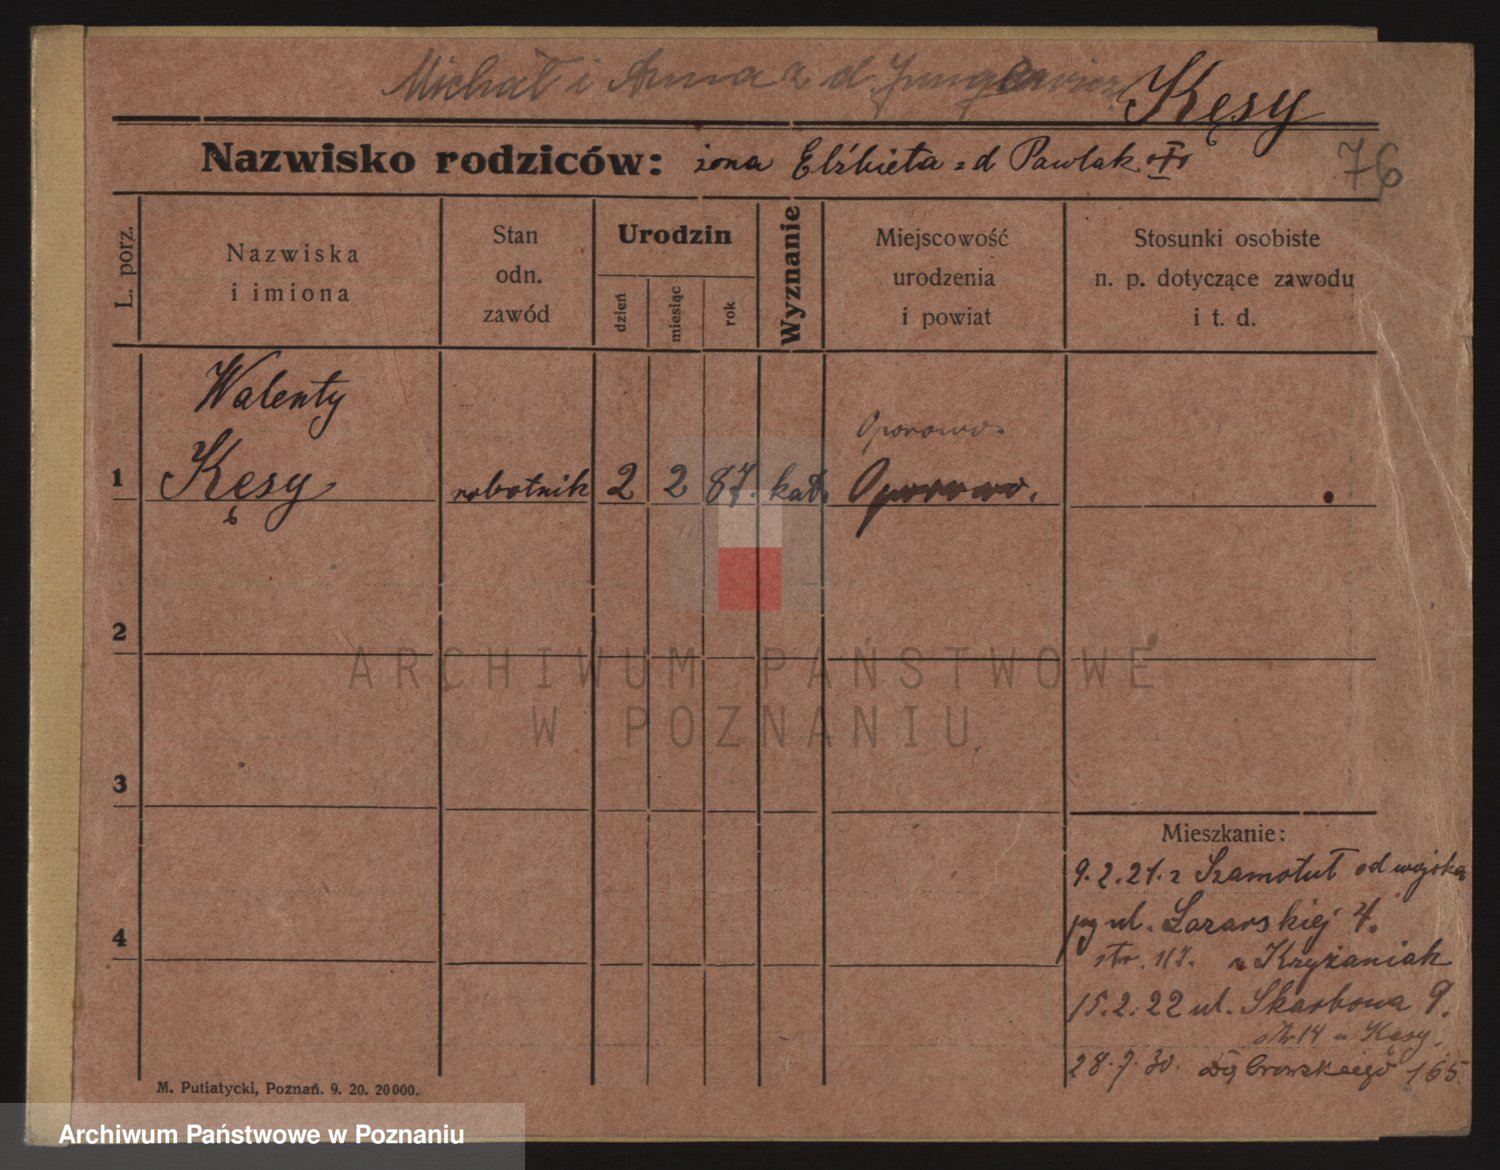 Michał i Anna z d.
Kęsy
Nazwisko rodziców: żona Elżbieta z d Pawlak
76
L. porz.
Nazwiska
i imiona
Stan
odn.
zawód
Urodzin
dzień
miesiąc
rok
Wyznanie
Miejscowość
urodzenia
i powiat
Stosunki osobiste
n. p. dotyczące zawodu
i t. d.
Walenty
Oporowo.
1 Kęsy robotnik 2 2 87. kat. Oporowo.
2
ARCHIWUM PAŃSTWOWE
W POZNANIU
3
Mieszkanie:
9.2.21. z Szamotuł od wojska
ul. Łazarskiej 4.
4
str. 117. u Krzyżaniak
15.2.22 ul. Skarbowa 9.
str 14 u Kęsy.
28.7.30. Dąbrowskiego 165.
M. Putiatycki, Poznań. 9. 20. 20000.
Archiwum Państwowe w Poznaniu